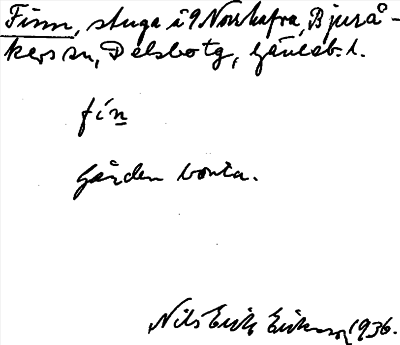 Finn, stuga i 9 Norrhafra, Bjurå-
kers sn, Delsbo tg, Gävleb. l.
fin
Gården borta.
Nils Erik Eriksson 1936.